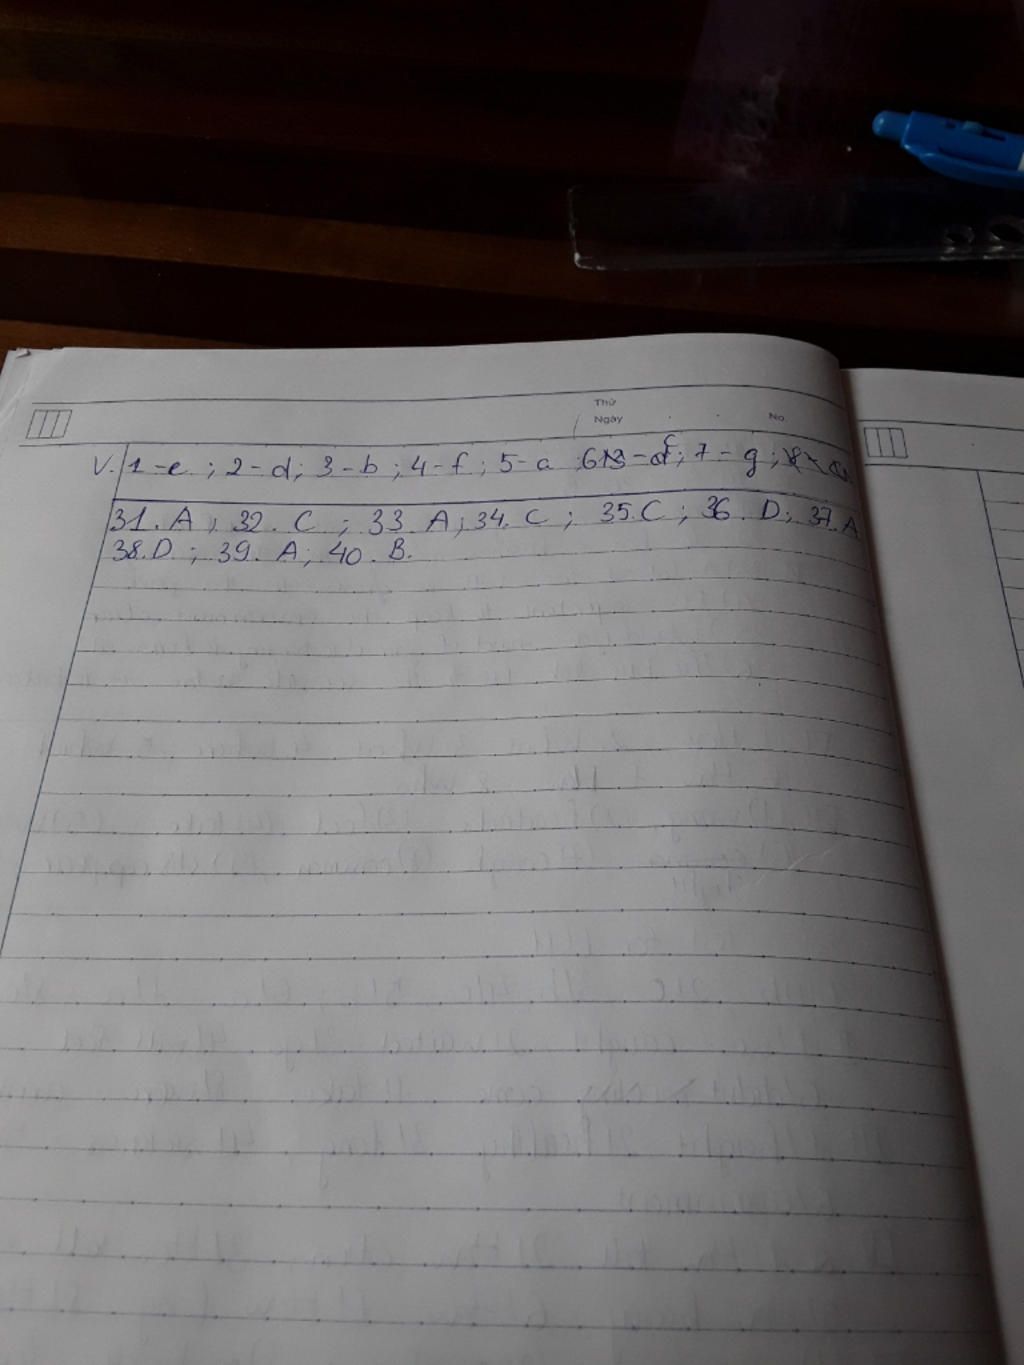 Thứ
Ngày No.
V. 1-e ; 2-d ; 3-b ; 4-f ; 5-a ; 6 - c ; 7-g ;
31. A ; 32. C ; 33. A ; 34. C ; 35. C ; 36. D ; 37. A
38. D ; 39. A ; 40. B.